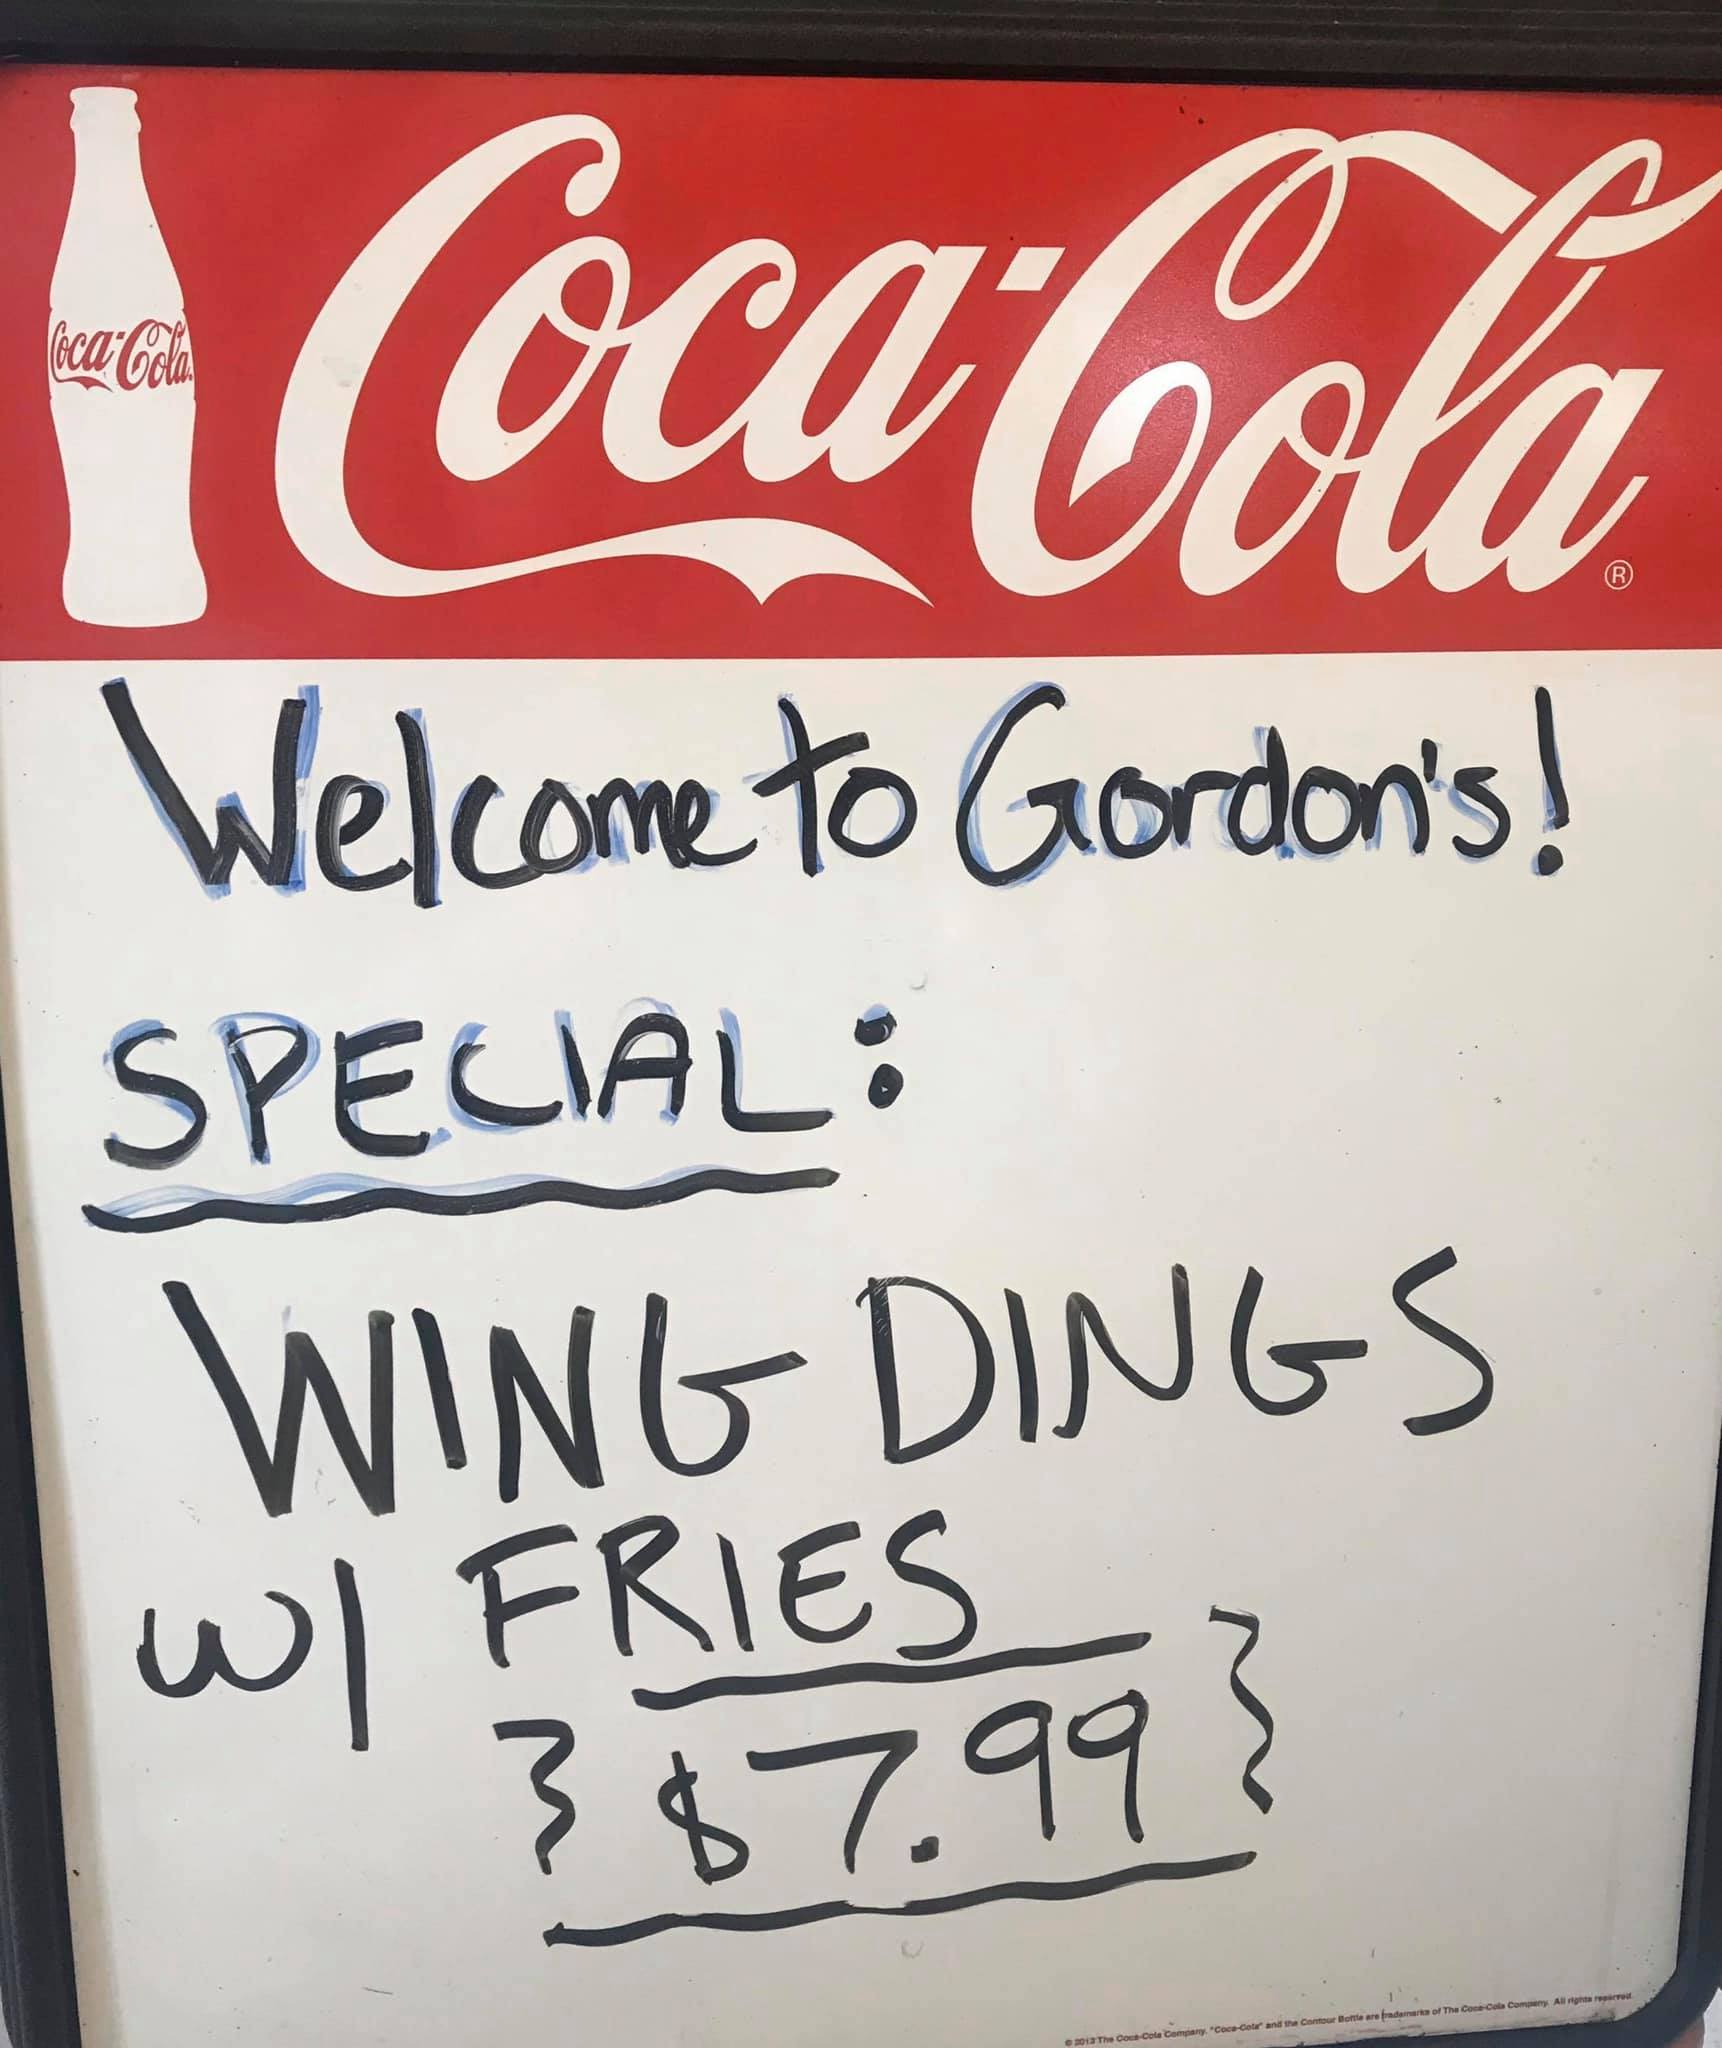 Coca-Cola
Coca-Cola®
Welcome to Gordon's!
SPECIAL:
WING DINGS
w/ FRIES
$7.99
© 2013 The Coca-Cola Company. "Coca-Cola" and the Contour Bottle are trademarks of The Coca-Cola Company. All rights reserved.